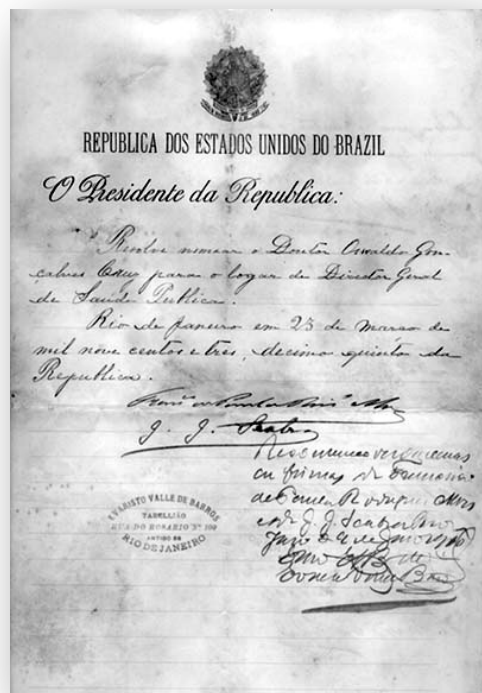 REPUBLICA DOS ESTADOS UNIDOS DO BRAZIL
O Presidente da Republica:
Resolve nomear o Doutor Oswaldo Gon
çalves Cruz para o logar de Director Geral
de Saude Publica.
Rio de Janeiro em 23 de Março de
mil nove centos e tres, decimo quinto da
Republica.
J. J. Seabra
Reconheco verdadeiras
as firmas de Francisco
de Paula Rodrigues Alves
e de J. J. Seabra. Rio
EVARISTO VALLE DE BARROS
TABELLIÃO
RUA DO ROSARIO Nº 100
ANTIGO 58
RIO DE JANEIRO